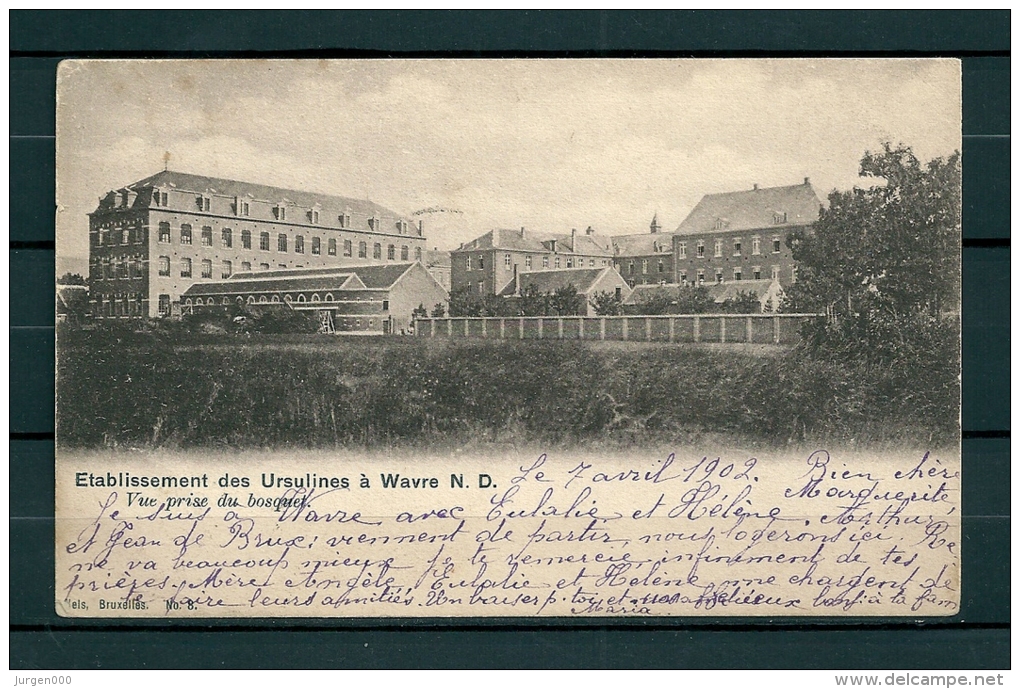 Etablissement des Ursulines à Wavre N. D.
Vue prise du bosquet.
Le 7 avril 1902. Bien chère
Marguerite
Je suis à Wavre avec Eulalie et Hélène. Arthur
et Jean de Brux: viennent de partir, nous logerons ici.
ne va beaucoup mieux Je te remercie infiniment de tes
prières. Mère Angèle, Eulalie et Hélène me chargent de
te faire leurs amitiés. Un baiser p. toi et
Maria
els, Bruxelles. No. 8.
Jurgen000
www.delcampe.net